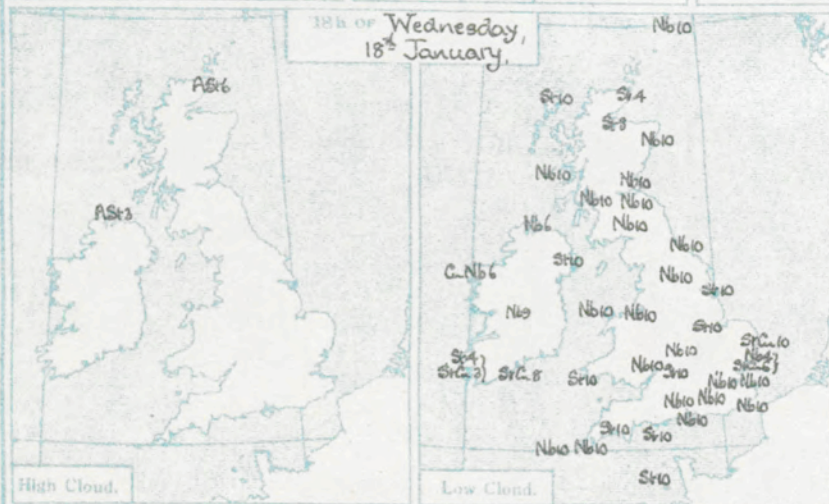 18h OF Wednesday,
18th January.
ASt6
ASt3
High Cloud.
Nb10
St10 St4
St8
Nb10
Nb10 Nb10
Nb10 Nb10
Nb6 Nb10
Nb10
St10
CuNb6 Nb10
St10
Nb9 Nb10 Nb10
St10
StCu10
Nb10 Nb4}
St4} Nb10 St10 StCu6}
StCu3} StCu8 St10 Nb10 Nb10
Nb10 Nb10 Nb10
Nb10
St10 St10
Nb10 Nb10
St10
Low Cloud.